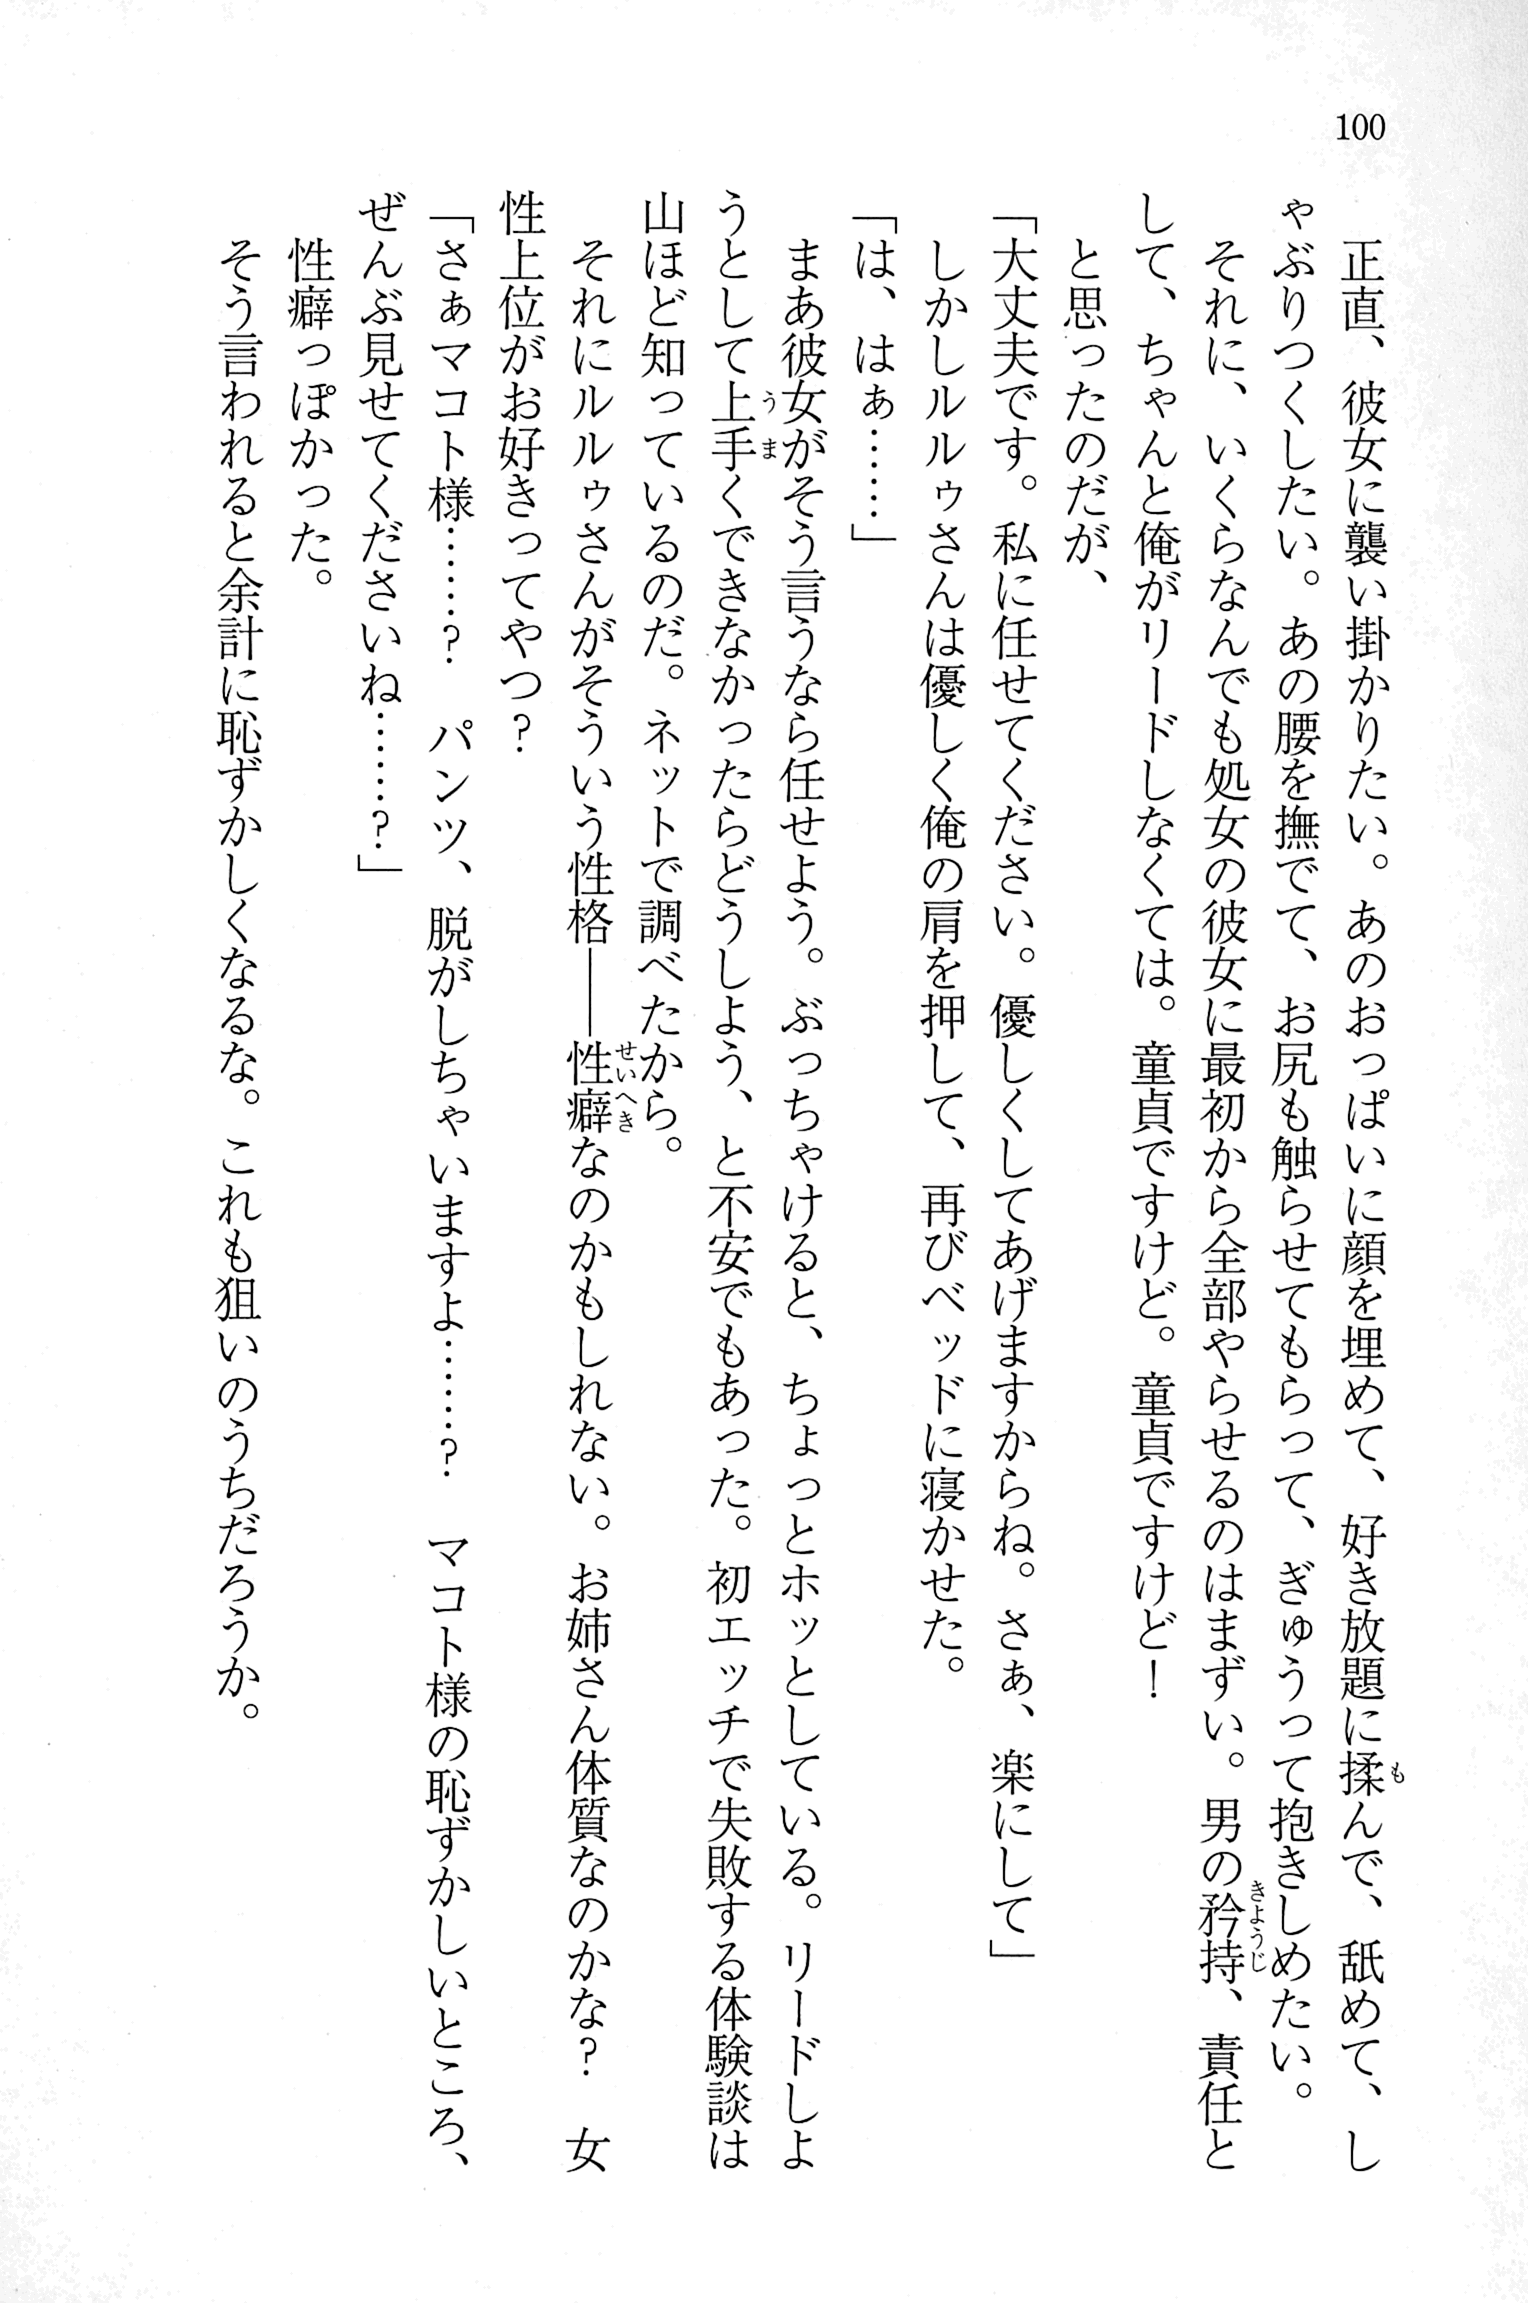 100
正直、彼女に襲い掛かりたい。あのおっぱいに顔を埋めて、好き放題に揉んで、舐めて、し
ゃぶりつくしたい。あの腰を撫でて、お尻も触らせてもらって、ぎゅうって抱きしめたい。
それに、いくらなんでも処女の彼女に最初から全部やらせるのはまずい。男の矜持、責任と
して、ちゃんと俺がリードしなくては。童貞ですけど。童貞ですけど！
と思ったのだが、
「大丈夫です。私に任せてください。優しくしてあげますからね。さぁ、楽にして」
しかしルルゥさんは優しく俺の肩を押して、再びベッドに寝かせた。
「は、はぁ……」
まあ彼女がそう言うなら任せよう。ぶっちゃけると、ちょっとホッとしている。リードしよ
うとして上手くできなかったらどうしよう、と不安でもあった。初エッチで失敗する体験談は
山ほど知っているのだ。ネットで調べたから。
それにルルゥさんがそういう性格――性癖なのかもしれない。お姉さん体質なのかな？　女
性上位がお好きってやつ？
「さぁマコト様……？　パンツ、脱がしちゃいますよ……？　マコト様の恥ずかしいところ、
ぜんぶ見せてくださいね……？」
性癖っぽかった。
そう言われると余計に恥ずかしくなるな。これも狙いのうちだろうか。